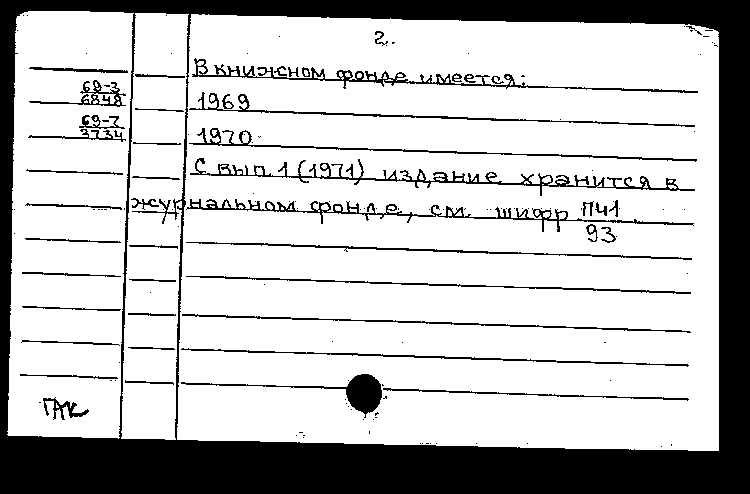 2.
В книжном фонде имеется:
69-3
6848 1969
69-7
3734 1970
С вып. 1 (1971) издание хранится в
журнальном фонде, см. шифр П41
93
ГАК